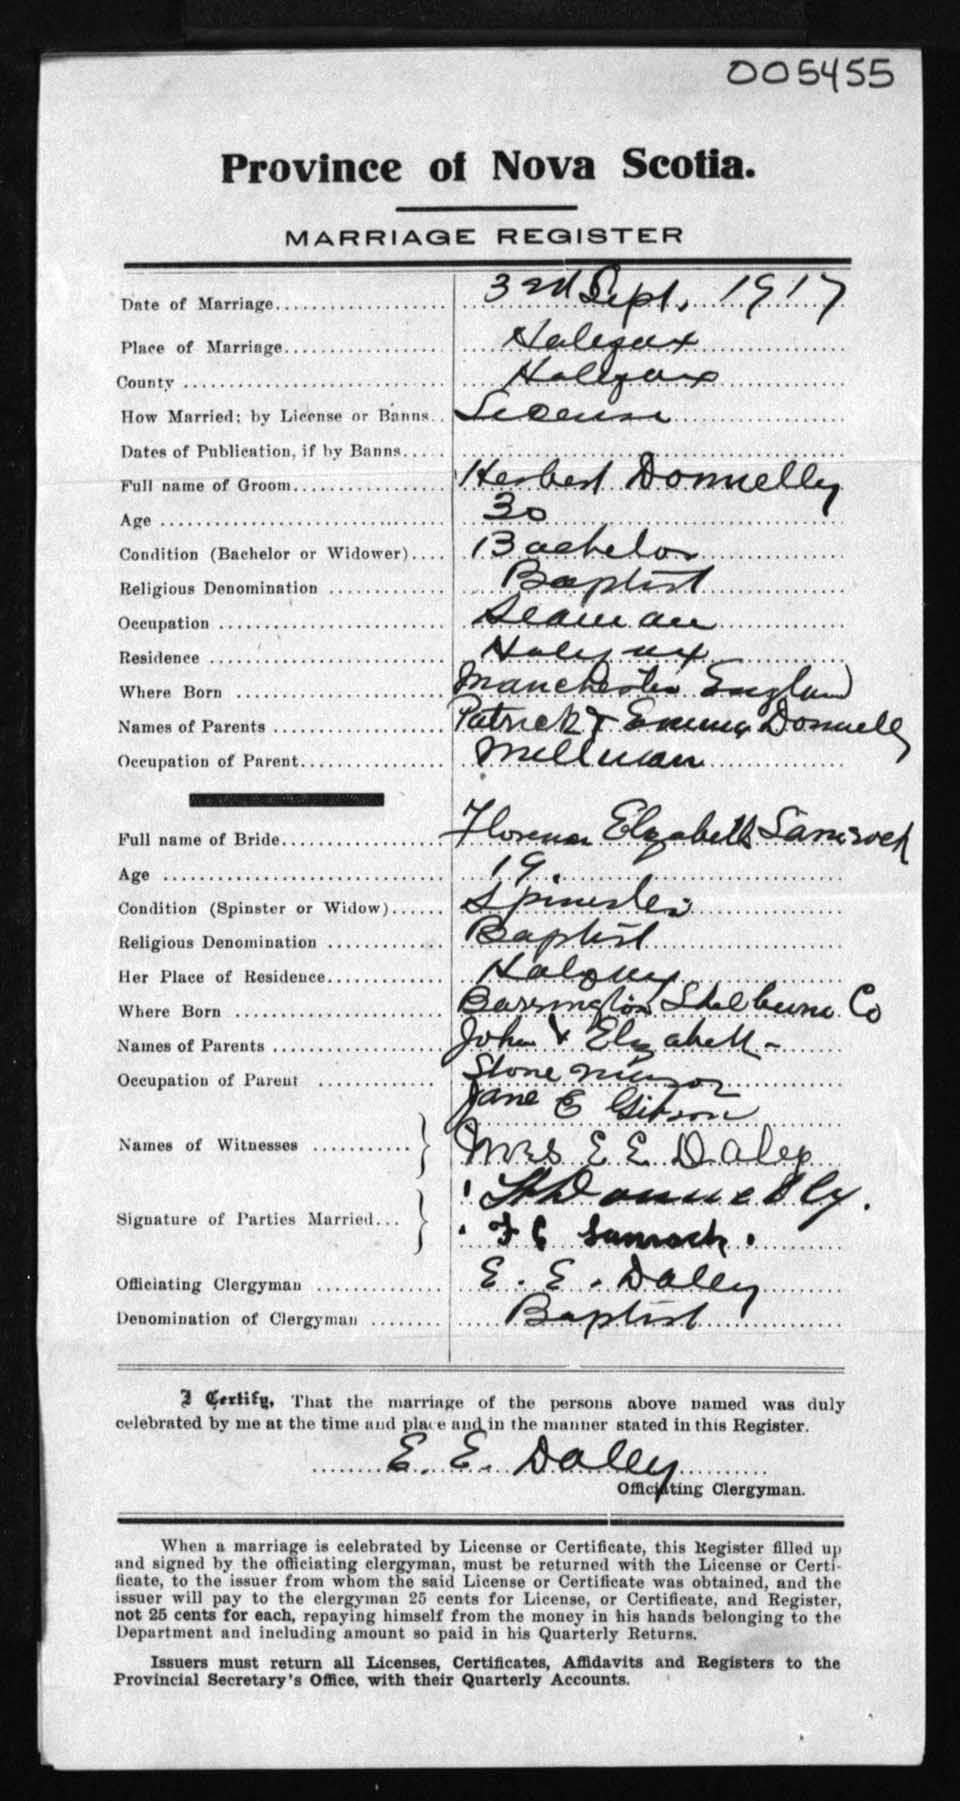 005455
Province of Nova Scotia.
MARRIAGE REGISTER
Date of Marriage 3rd Sept, 1917
Place of Marriage Halifax
County Halifax
How Married; by License or Banns License
Dates of Publication, if by Banns
Full name of Groom Herbert Donnelly
Age 30
Condition (Bachelor or Widower) Bachelor
Religious Denomination Baptist
Occupation Seaman
Residence Halifax
Where Born Manchester England
Names of Parents Patrick & Emma Donnelly
Occupation of Parent Millman
Full name of Bride Florence Elizabeth
Age 19.
Condition (Spinster or Widow) Spinster
Religious Denomination Baptist
Her Place of Residence Halifax
Where Born Barrington Shelburne Co
Names of Parents John & Elizabeth -
Occupation of Parent Stone mason
Jane E Gibson
Names of Witnesses Mrs E E Daley
H Donnelly.
Signature of Parties Married
F E
Officiating Clergyman E. E. Daley
Denomination of Clergyman Baptist
I Certify, That the marriage of the persons above named was duly
celebrated by me at the time and place and in the manner stated in this Register.
E. E. Daley
Officiating Clergyman.
When a marriage is celebrated by License or Certificate, this Register filled up
and signed by the officiating clergyman, must be returned with the License or Certi-
ficate, to the issuer from whom the said License or Certificate was obtained, and the
issuer will pay to the clergyman 25 cents for License, or Certificate, and Register,
not 25 cents for each, repaying himself from the money in his hands belonging to the
Department and including amount so paid in his Quarterly Returns.
Issuers must return all Licenses, Certificates, Affidavits and Registers to the
Provincial Secretary's Office, with their Quarterly Accounts.